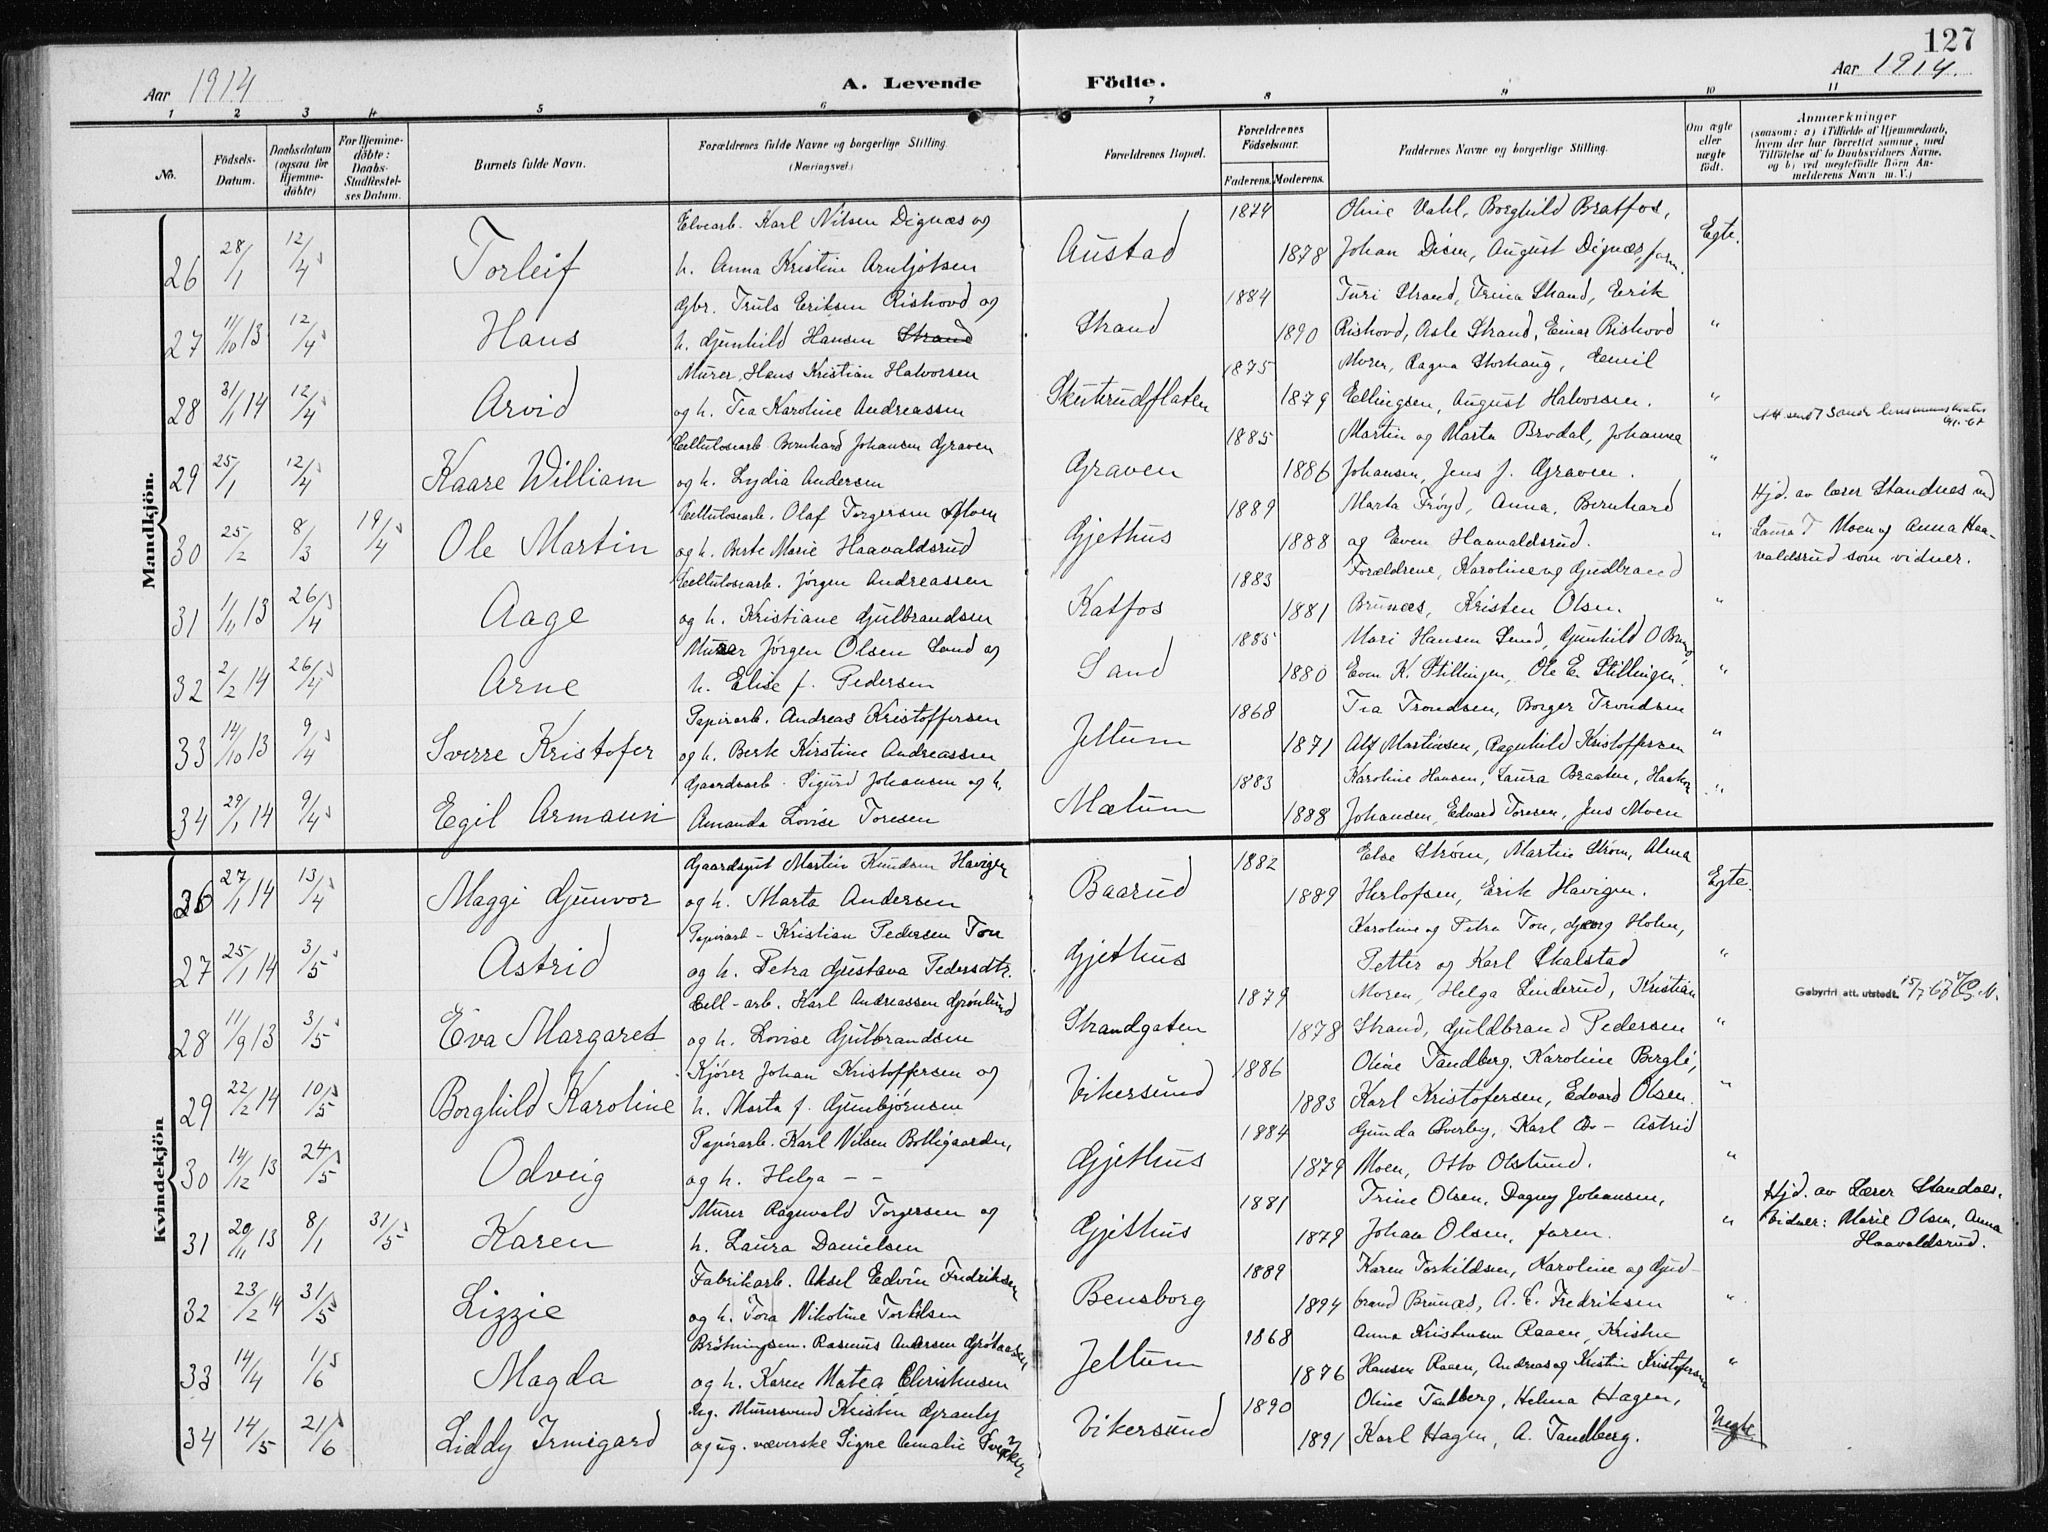 127
Aar 1914
A. Levende Födte.
Aar 1914.
1 2 3 4 5 6 7 8 9 10 11
No.
Födsels-Datum.
Daabsdatum (ogsaa for Hjemmedöbte)
For Hjemmedöbte: Daabs-Stadfæstelses Datum.
Barnets fulde Navn.
Forældrenes fulde Navne og borgerlige Stilling. (Næringsvei.)
Forældrenes Bopæl.
Forældrenes Födselsaar.
Faderens. Moderens.
Faddernes Navne og borgerlige Stilling.
Om ægte eller uægte födt.
Anmærkninger
(saasom: a) i Tilfælde af Hjemmedaab, hvem der har forrettet samme, med Tilföielse af to Daabsvidners Navne, og b) ved uægtefödte Börn Anmelderens Navn m. V.)
Mandkjön.
Elvearb. Karl Nilsen Dignæs og 1874 Oline Vahl, Borghild Bratfos,
26 28/1 12/4 Torleif h. Anna Kristine Arntjotsen Austad 1878 Johan Disen, August Dignæs, farn. Egte.
Gbr. Truls Eriksen Rishovd og 1884 Turi Strand, Trina Strand, Erik
27 11/10 13 12/4 Hans h. Gunhild Hansen Strand Strand 1890 Rishovd, Asle Strand, Einar Rishovd "
Murer Hans Kristian Halvorsen 1875 Moren, Ragna Storhaug, Emil
28 31/1 14 12/4 Arvid og h. Tea Karoline Andreassen Skutrudflaten 1879 Ellingsen, August Halvorsen. "
Cellulosearb. Bernhard Johansen Graven 1885 Martin og Marta Brodal, Johanna
29 25/1 12/4 Kaare William og h. Lydia Andersen Graven 1886 Johansen, Jens J. Graven. "
Cellulosearb. Olaf Torgersen Moen 1889 Marta Frøyd, Anna, Bernhard
30 25/2 8/3 19/4 Ole Martin og h. Berte Marie Haavaldsrud Gjethus 1888 og Even Haavaldsrud. " Hjd. av lærer Standnes med Laura T. Moen og Anna Haavaldsrud som vidner.
Cellulosearb. Jørgen Andreassen 1883 Forældrene, Karoline og Gudbrand
31 1/11 13 26/4 Aage og h. Kristiane Gulbrandsen Katfos 1881 Brunæs, Kristen Olsen. "
Murer Jørgen Olsen Sand og 1885 Mari Hansen Sund, Gunhild O
32 2/2 14 26/4 Arne h. Elise f. Pedersen Sand 1880 Even K. Stillingen, Ole E. Stillingen. "
Papirarb. Andreas Kristoffersen 1868 Tea Trondsen, Borger Trondsen
33 14/10 13 9/4 Sverre Kristofer og h. Berte Kirstine Andreassen Jellum 1871 Alf Martinsen, Ragnhild Kristoffersen "
Gaardsarb. Sigurd Johansen og h. 1883 Karoline Hansen, Laura Braaten, Haakon
34 29/1 14 9/4 Egil Armann Amanda Lovise Toresen Mælum 1888 Johansen, Edvard Toresen, Jens Moen "
Kvindekjön
Gaardsgut Martin Knudsen Havigen 1882 Else Strøm, Martin Strøm, Alma
26 27/1 14 13/4 Maggi Gunvor og h. Marta Andersen Baarud 1889 Herlofsen, Erik Havigen. Egte.
Papirarb - Kristian Pedersen Ton Karoline og Petra Ton, Georg Holen,
27 25/1 14 3/5 Astrid og h. Petra Gustava Pedersdtr. Gjethus Petter og Karl Skalstad "
Cell-arb. Karl Andreassen Grønlund 1879 Moren, Helga Linderud, Kristian Gebyrfri att. utstedt. 15/7 67
28 11/9 13 3/5 Eva Margaret og h. Lovise Gulbrandsen Strandgaten 1878 Strand, Guldbrand Pedersen "
Kjører Johan Kristoffersen og 1886 Oline Tandberg, Karoline Bergli,
29 22/2 14 10/5 Borghild Karoline h. Marta f. Gunbjørnsen Vikersund 1883 Karl Kristofersen, Edvard Olsen. "
Papirarb. Karl Nilsen Bolligaarden, 1884 Gunda Øverby, Karl Ø- Astrid
30 14/12 13 24/5 Odveig og h. Helga - - Gjethus 1879 Moen, Otto Olstund. "
Murer Ragnvald Torgersen og 1881 Trine Olsen, Dagny Johansen,
31 20/11 13 8/1 31/5 Karen h. Laura Danielsen Gjethus 1879 Johan Olsen, faren. " Hjd. av Lærer Standnes, Vidner: Marie Olsen, Anna Haavaldsrud.
Fabrikarb. Aksel Edvin Fredriksen 1889 Karen Torkildsen, Karoline og Gud-
32 23/2 14 31/5 Lizzie og h. Tora Nikoline Torkilsen Bensborg 1894 brand Brunæs, A. E. Fredriksen "
Brøtningsm. Rasmus Andersen Grøtaasen 1868 Anna Kristensen Raaen, Kristen
33 14/4 1/6 Magda og h. Karen Matea Christensen Jellum 1876 Hansen Raaen, Andreas og Kristin Kristofersen "
Ug. Murersvend Kristen Granly 1890 Oline Tandberg, Helena Hagen,
34 14/5 21/6 Liddy Irmigard og ug. væverske Signe Amalie Vikersund 1891 Karl Hagen, A. Tandberg. Uegte.